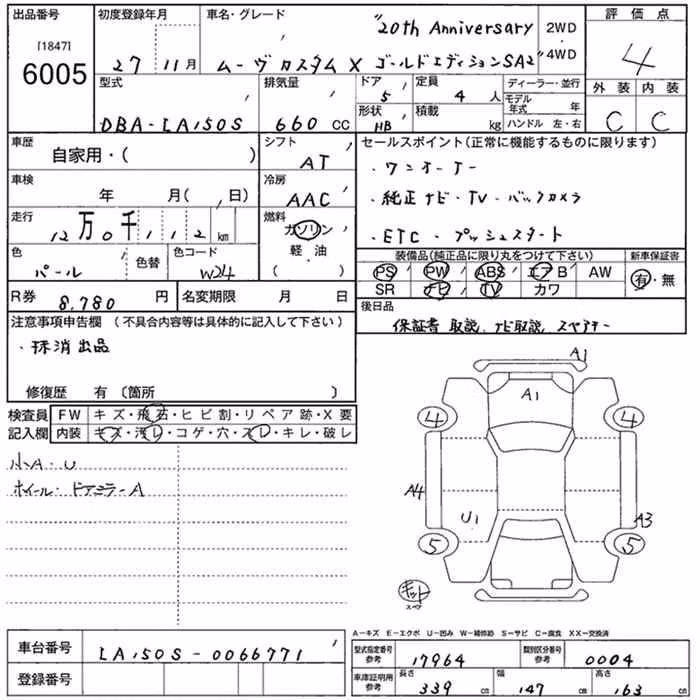 出品番号 初度登録年月 車名・グレード "20th Anniversary 2WD 評価点
[1847] 6005 27 11月 ムーヴ カスタム X ゴールドエディションSA2" 4WD 4
型式 排気量 ドア 定員 ディーラー・並行 外装 内装
DBA-LA150S 660 CC 5 4 人 モデル年式 年 C C
形状 積載 ハンドル 左・右
HB kg
車歴 シフト セールスポイント(正常に機能するものに限ります)
自家用・( ) AT ・ワンオーナー
車検 冷房 ・純正ナビ・TV・バックカメラ
年 月( 日) AAC ・ETC・プッシュスタート
走行 燃料
12万0千112 km ガソリン
軽・油
・( )
色 色替 色コード 装備品(純正品に限り丸をつけて下さい) 新車保証書
パール W24 PS PW ABS エアB AW 有・無
SR ナビ TV カワ
R券 名変期限 月 日 後日品
8,780 円 保証書 取説 ナビ取説 スペアキー
注意事項申告欄 (不具合内容等は具体的に記入して下さい)
・抹消出品
修復歴 有 〔箇所 〕
検査員 FW キズ・飛石・ヒビ割・リペア跡・X要
記入欄 内装 キズ・汚レ・コゲ・穴・スレ・キレ・破レ
小A・U
ホイール・ドアミラーA
A1
A1
4 4
A4
U1 A3
5 5
キット
スペア
A-キズ E-エクボ U-凹み W-補修跡 S-サビ C-腐食 XX-交換済
車台番号 LA150S-0066771 型式指定番号 参考 17964 類別区分番号 参考 0004
登録番号 車庫証明用 参考 長さ 339 cm 幅 147 cm 高さ 163 cm